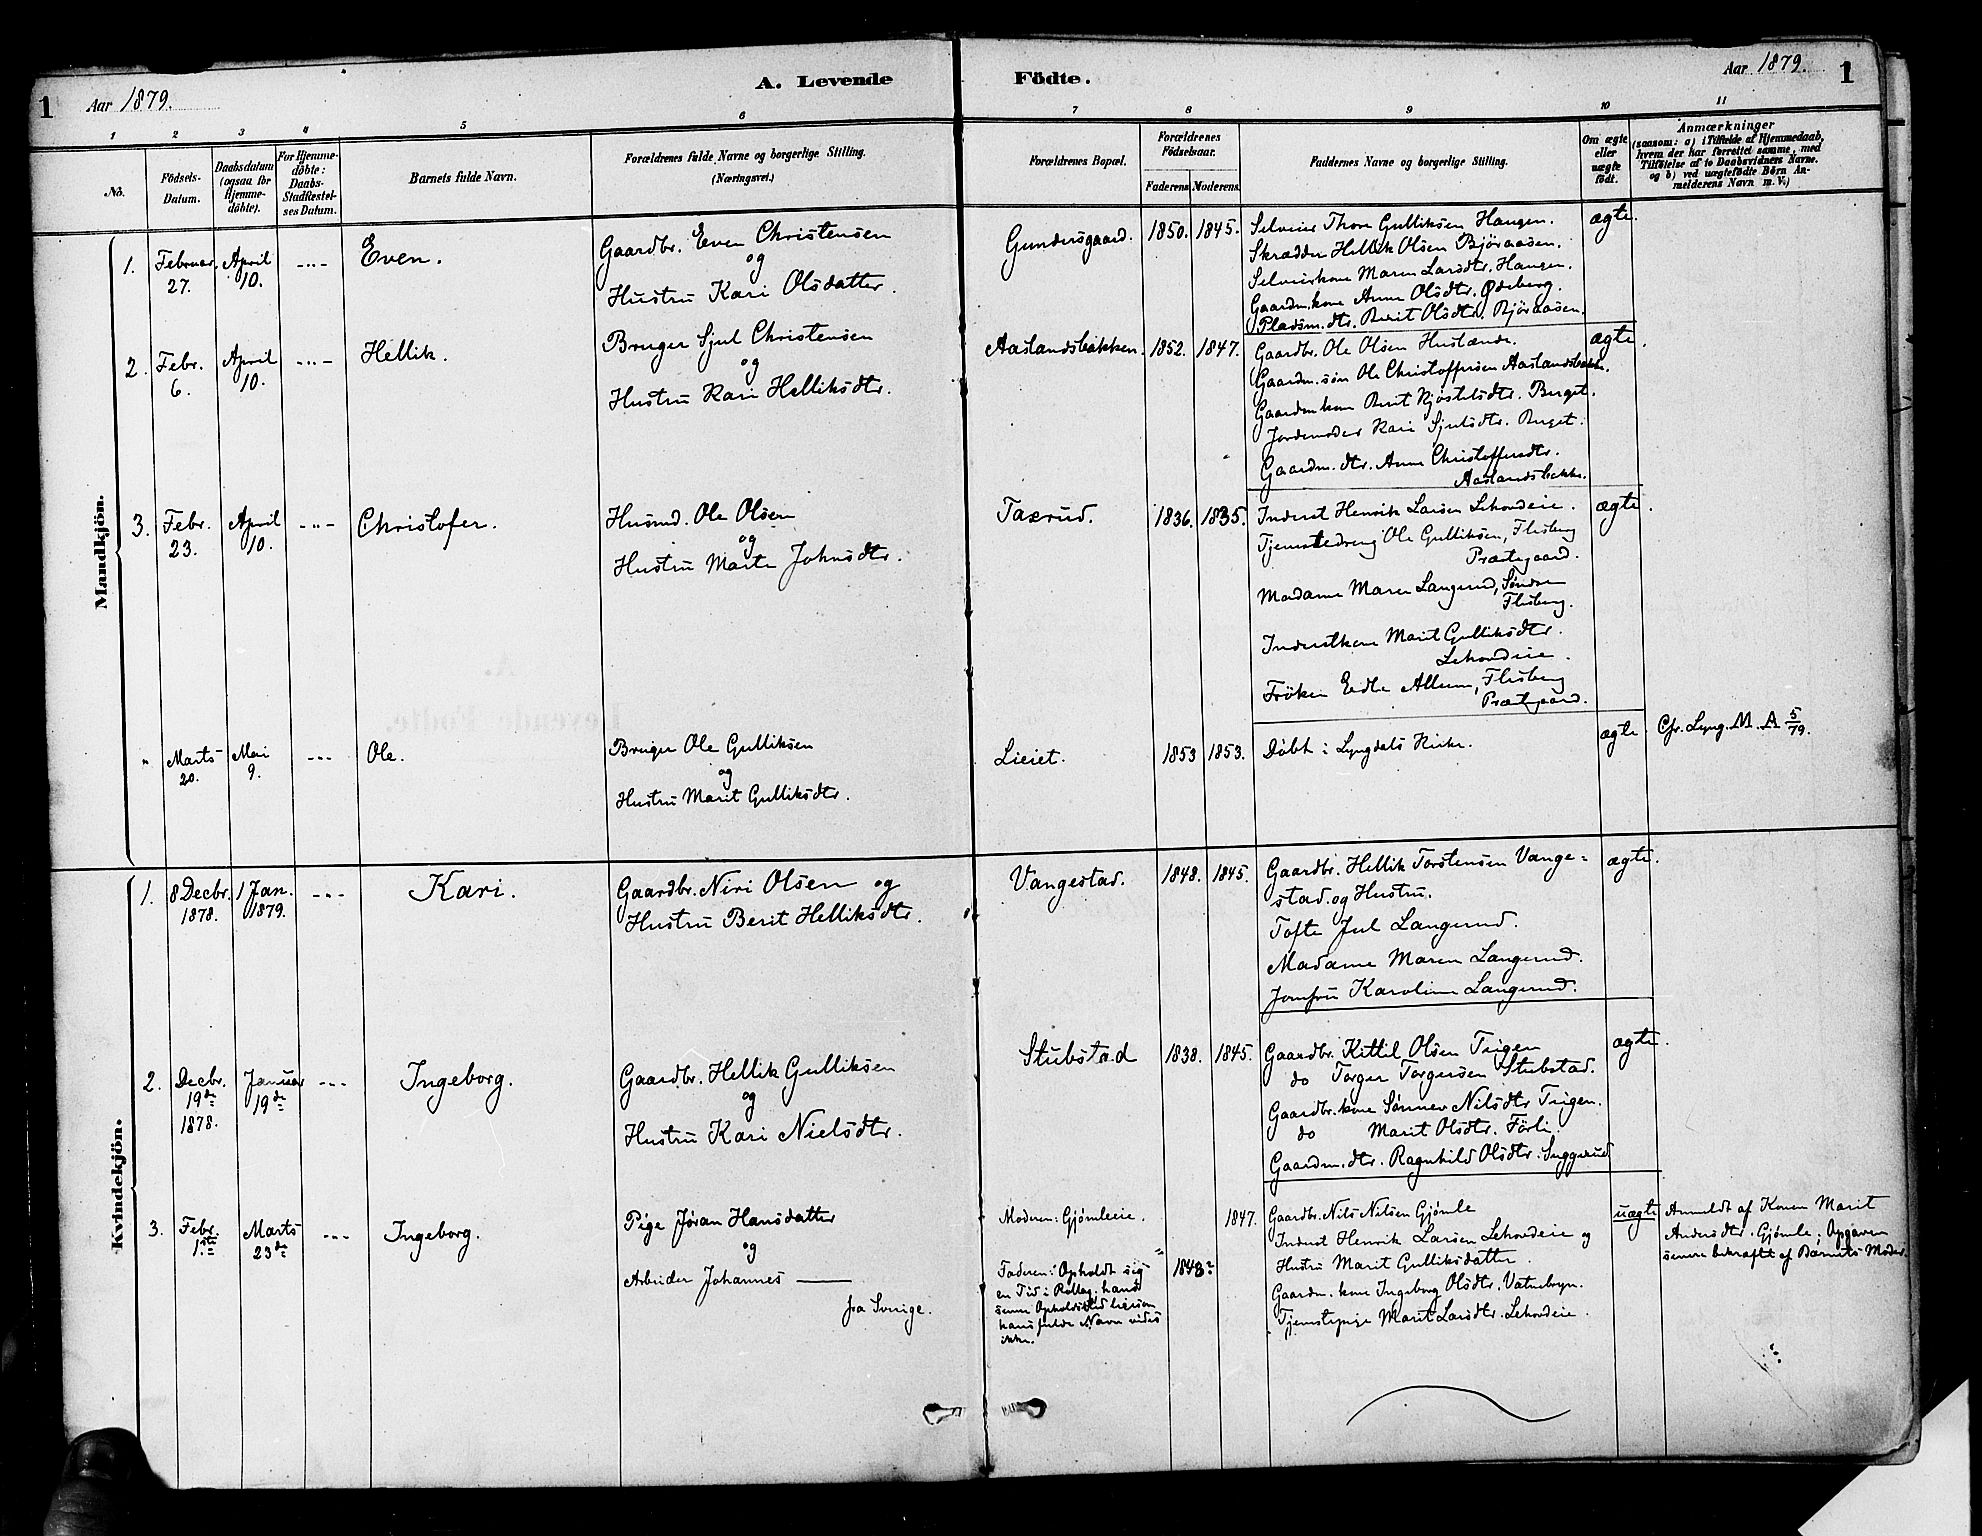 1
Aar 1879.
A. Levende
Födte.
Aar 1879.
1
1
2
3
4
5
6
7
8
9
10
11
No.
Födsels-
Datum.
Daabsdatum
(ogsaa for
Hjemme-
döbte).
For Hjemme-
döbte:
Daabs-
Stadfæstel-
ses Datum.
Barnets fulde Navn.
Forældrenes fulde Navne og borgerlige Stilling.
(Næringsvei.)
Forældrenes Bopæl.
Forældrenes
Födselsaar.
Faderens
Moderens.
Faddernes Navne og borgerlige Stilling.
Om ægte
eller
uægte
født.
Anmærkninger
(saasom: a) i Tilfælde af Hjemmedaab,
hvem der har forrettet samme, med
Tilföielse af to Daabsvidners Navne,
og b) ved uægtefödte Börn An-
melderens Navn m. V.)
Mandkjön.
1.
Februar.
27.
April
10.
-..-
Even.
Gaardbr. Even Christensen
og
Hustru Kari Olsdatter.
Gundersgaard.
1850.
1845.
Selveier Thore Gulliksen Haugen.
Skrædder Hellik Olsen Björaasen.
Selveierkone Maren Larsdtr. Haugen.
Gaardm.kone Anne Olsdtr. Ødeberg.
Pladsm. dtr. Berit Olsdtr. Björaasen.
ægte.
2.
Febr.
6.
April
10.
-..-
Hellik.
Bruger Sjul Christensen
og
Hustru Kari Helliksdtr.
Aaslandsbakken.
1852.
1847.
Gaardbr. Ole Olsen Huslænde.
Gaardm. sön Ole Christoffersen Aaslandsbakke.
Gaardm kone Berit Kjöstelsdtr. Berget.
Jordemoder Kari Sjulsdtr. Berget.
Gaardm. dtr. Anne Christoffersdtr.
Aaslandsbakke.
ægte.
3.
Febr.
23.
April
10.
-..-
Christofer.
Husmd. Ole Olsen
og
Hustru Marte Johnsdtr.
Taxrud.
1836.
1835.
Inderst Henrik Larsen Lehovdeie.
Tjenestedreng Ole Gulliksen, Flesberg
Præstegaard.
Madame Maren Langerud, Søndre
Flesberg.
Inderstkone Marit Gulliksdtr.
Lehovdeie.
Fröken Edle Allum, Flesberg
Præstegaard.
ægte.
"
Marts
20.
Mai
9.
-..-
Ole.
Bruger Ole Gulliksen
og
Hustru Marit Gulliksdtr.
Lieiet.
1853
1853.
Döbt i Lyngdals Kirke.
ægte.
Cfr. Lyng. M. A 5/79.
Kvindekjön.
1.
8 Decbr.
1878.
1 Jan.
1879.
-..-
Kari.
Gaardbr. Niri Olsen og
Hustru Berit Helliksdtr.
Vangestad.
1848.
1845.
Gaardbr. Hellik Torstensen Vange=
stad. og Hustru.
Tofte Juel Langerud.
Madame Maren Langerud.
Jomfru Karoline Langerud.
ægte.
2.
Decbr.
19de
1878.
Januar
19de
-..-
Ingeborg.
Gaardbr. Hellik Gulliksen
og
Hustru Kari Nielsdtr.
Stubstad
1838.
1845.
Gaardbr. Kittil Olsen Teigen
do Torger Torgersen Stubstad.
Gaardbr. kone Sönnev Nilsdtr Teigen.
do Marit Olsdtr. Förli.
Gaardm. dtr. Ragnhild Olsdtr. Suggerud
ægte.
3.
Febr.
1ste
Marts
23de
-..-
Ingeborg.
Pige Jöran Hansdatter
og
Arbeider Johannes
fra Sverige.
Moderen: Gjömleeie.
Faderen: Opholdt sig
en Tid i Rollag, hans
senere Opholdssted ligesom
hans fulde Navn vides
ikke.
1847.
1848?
Gaardbr. Nils Nilsen Gjömle
Inderst Henrik Larsen Lehovdeie og
Hustru Marit Gulliksdatter.
Gaardm. kone Ingeborg Olsdtr. Vatnebryn.
Tjenestepige Marit Larsdtr. Lehovdeie.
uægte
Anmeldt af Konen Marit
Andersdtr. Gjömle; Opgaven
senere bekræftet af Barnets Moder.